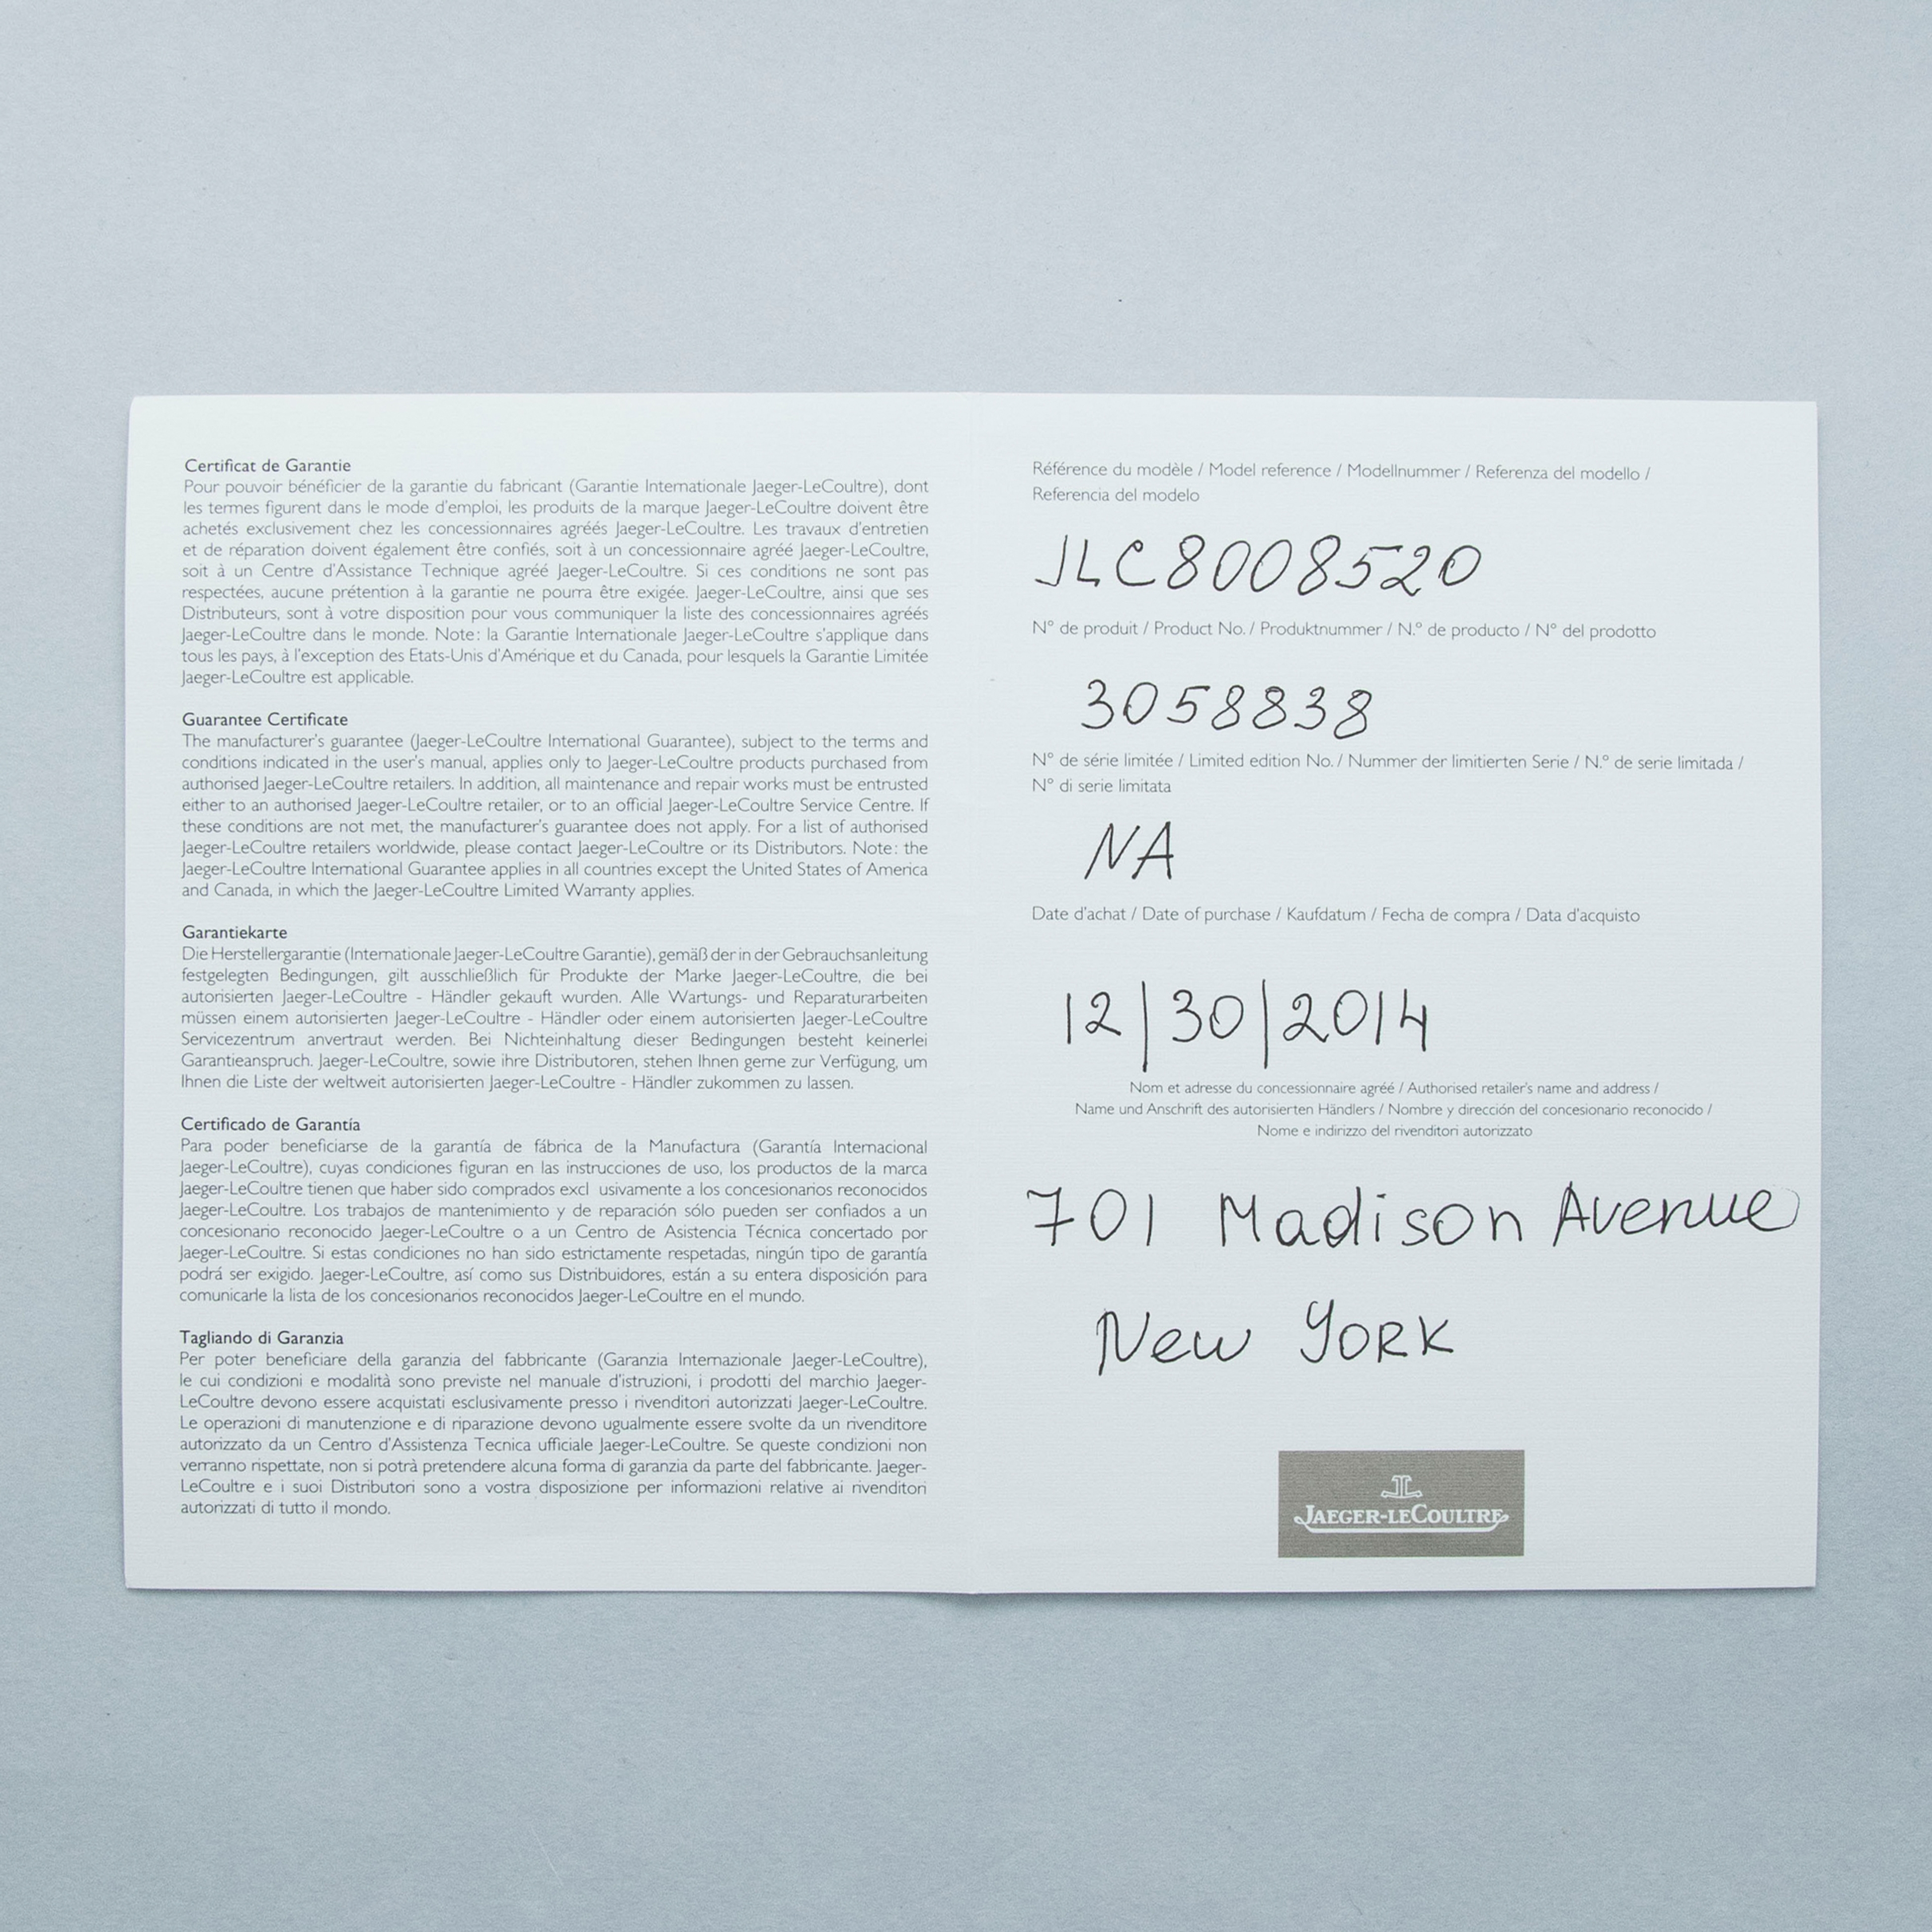 Certificat de Garantie
Pour pouvoir bénéficier de la garantie du fabricant (Garantie Internationale Jaeger-LeCoultre), dont
les termes figurent dans le mode d'emploi, les produits de la marque Jaeger-LeCoultre doivent être
achetés exclusivement chez les concessionnaires agréés Jaeger-LeCoultre. Les travaux d'entretien
et de réparation doivent également être confiés, soit à un concessionnaire agréé Jaeger-LeCoultre,
soit à un Centre d'Assistance Technique agréé Jaeger-LeCoultre. Si ces conditions ne sont pas
respectées, aucune prétention à la garantie ne pourra être exigée. Jaeger-LeCoultre, ainsi que ses
Distributeurs, sont à votre disposition pour vous communiquer la liste des concessionnaires agréés
Jaeger-LeCoultre dans le monde. Note: la Garantie Internationale Jaeger-LeCoultre s'applique dans
tous les pays, à l'exception des Etats-Unis d'Amérique et du Canada, pour lesquels la Garantie Limitée
Jaeger-LeCoultre est applicable.
Guarantee Certificate
The manufacturer's guarantee (Jaeger-LeCoultre International Guarantee), subject to the terms and
conditions indicated in the user's manual, applies only to Jaeger-LeCoultre products purchased from
authorised Jaeger-LeCoultre retailers. In addition, all maintenance and repair works must be entrusted
either to an authorised Jaeger-LeCoultre retailer, or to an official Jaeger-LeCoultre Service Centre. If
these conditions are not met, the manufacturer's guarantee does not apply. For a list of authorised
Jaeger-LeCoultre retailers worldwide, please contact Jaeger-LeCoultre or its Distributors. Note: the
Jaeger-LeCoultre International Guarantee applies in all countries except the United States of America
and Canada, in which the Jaeger-LeCoultre Limited Warranty applies.
Garantiekarte
Die Herstellergarantie (Internationale Jaeger-LeCoultre Garantie), gemäß der in der Gebrauchsanleitung
festgelegten Bedingungen, gilt ausschließlich für Produkte der Marke Jaeger-LeCoultre, die bei
autorisierten Jaeger-LeCoultre - Händler gekauft wurden. Alle Wartungs- und Reparaturarbeiten
müssen einem autorisierten Jaeger-LeCoultre - Händler oder einem autorisierten Jaeger-LeCoultre
Servicezentrum anvertraut werden. Bei Nichteinhaltung dieser Bedingungen besteht keinerlei
Garantieanspruch. Jaeger-LeCoultre, sowie ihre Distributoren, stehen Ihnen gerne zur Verfügung, um
Ihnen die Liste der weltweit autorisierten Jaeger-LeCoultre - Händler zukommen zu lassen.
Certificado de Garantía
Para poder beneficiarse de la garantía de fábrica de la Manufactura (Garantía Internacional
Jaeger-LeCoultre), cuyas condiciones figuran en las instrucciones de uso, los productos de la marca
Jaeger-LeCoultre tienen que haber sido comprados excl usivamente a los concesionarios reconocidos
Jaeger-LeCoultre. Los trabajos de mantenimiento y de reparación sólo pueden ser confiados a un
concesionario reconocido Jaeger-LeCoultre o a un Centro de Asistencia Técnica concertado por
Jaeger-LeCoultre. Si estas condiciones no han sido estrictamente respetadas, ningún tipo de garantía
podrá ser exigido. Jaeger-LeCoultre, así como sus Distribuidores, están a su entera disposición para
comunicarle la lista de los concesionarios reconocidos Jaeger-LeCoultre en el mundo.
Tagliando di Garanzia
Per poter beneficiare della garanzia del fabbricante (Garanzia Internazionale Jaeger-LeCoultre),
le cui condizioni e modalità sono previste nel manuale d'istruzioni, i prodotti del marchio Jaeger-
LeCoultre devono essere acquistati esclusivamente presso i rivenditori autorizzati Jaeger-LeCoultre.
Le operazioni di manutenzione e di riparazione devono ugualmente essere svolte da un rivenditore
autorizzato da un Centro d'Assistenza Tecnica ufficiale Jaeger-LeCoultre. Se queste condizioni non
verranno rispettate, non si potrà pretendere alcuna forma di garanzia da parte del fabbricante. Jaeger-
LeCoultre e i suoi Distributori sono a vostra disposizione per informazioni relative ai rivenditori
autorizzati di tutto il mondo.
Référence du modèle / Model reference / Modellnummer / Referenza del modello /
Referencia del modelo
JLC8008520
N° de produit / Product No. / Produktnummer / N.º de producto / N° del prodotto
3058838
N° de série limitée / Limited edition No. / Nummer der limitierten Serie / N.º de serie limitada /
N° di serie limitata
NA
Date d'achat / Date of purchase / Kaufdatum / Fecha de compra / Data d'acquisto
12|30|2014
Nom et adresse du concessionnaire agréé / Authorised retailer's name and address /
Name und Anschrift des autorisierten Händlers / Nombre y dirección del concesionario reconocido /
Nome e indirizzo del rivenditori autorizzato
701 Madison Avenue
New YORK
JAEGER-LECOULTRE